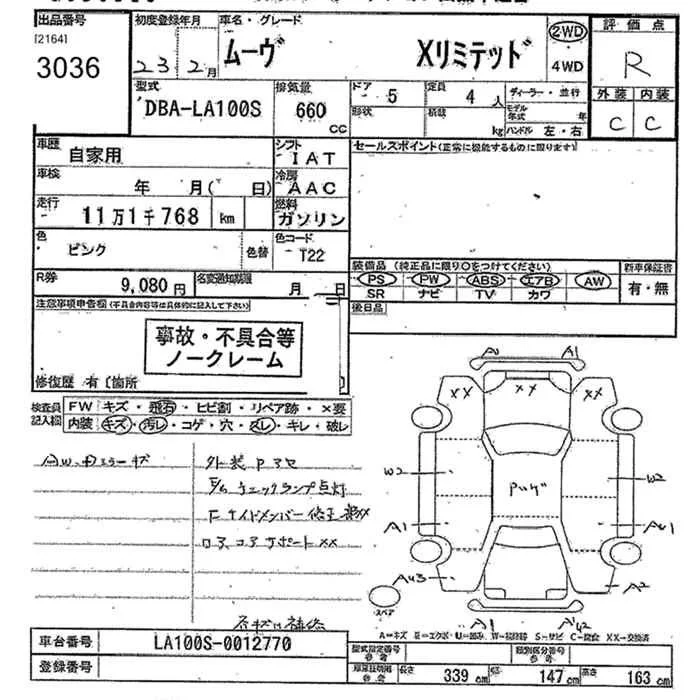 出品番号 初度登録年月 車名・グレード 評価点
[2164] 3036
23 2月 ムーヴ Xリミテッド 2WD 4WD R
型式 DBA-LA100S 排気量 660 CC ドア 5 定員 4 人 ディーラー・並行
形状 積載 kg モデル年式 年 ハンドル 左・右
外装 内装
C C
車歴 自家用 シフト IAT セールスポイント(正常に機能するものに限ります)
車検 年 月( 日) 冷房 AAC
走行 11万1千768 km 燃料 ガソリン
色 ピンク 色替 色コード T22
装備品(純正品に限り○をつけてください) 新車保証書
PS PW ABS エアB AW 有・無
SR ナビ TV カワ
R券 9,080円 名変通知期限 月 日
後日品
注意事項申告欄(不具合内容等は具体的に記入して下さい)
事故・不具合等
ノークレーム
修復歴 有〔箇所
検査員記入欄 FW キズ・飛石・ヒビ割・リペア跡・×要
内装 キズ・汚レ・コゲ・穴・スレ・キレ・破レ
外装
チェックランプ点灯
F サイドメンバー修正
コアサポート XX
A1
XX XX XX
W2 W2
A1
A2
A1
スペア
A=キズ
XX=交換済
車台番号 LA100S-0012770
登録番号
型式指定番号 参考 類別区分番号 参考
長さ 339 cm 幅 147 cm 高さ 163 cm